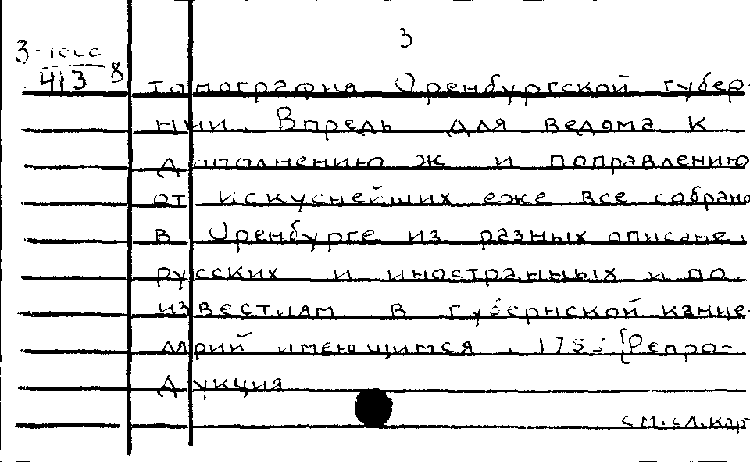 3
413 8
топография Оренбургской губер-
нии. Впредь для ведома к
дополнению ж и поправлению
от искуснейших еже все собрано
в Оренбурге из разных описане.
русских и иностранных и по.
известиям в губернской канце-
лярий имеющимся. [Репро-
дукция
см.сл.кар